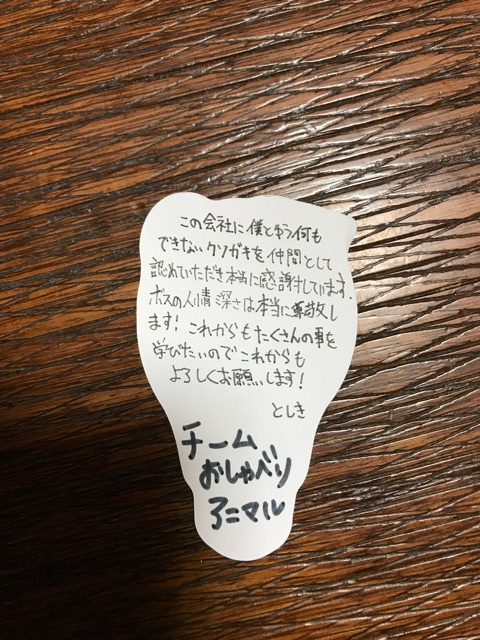 この会社に僕とゆう何も
できないクソガキを仲間として
認めていただき本当に感謝しています.
ボスの人情深さは本当に尊敬し
ます! これからもたくさんの事を
学びたいのでこれからも
よろしくお願いします!
としき
チーム
おしゃべり
アニマル